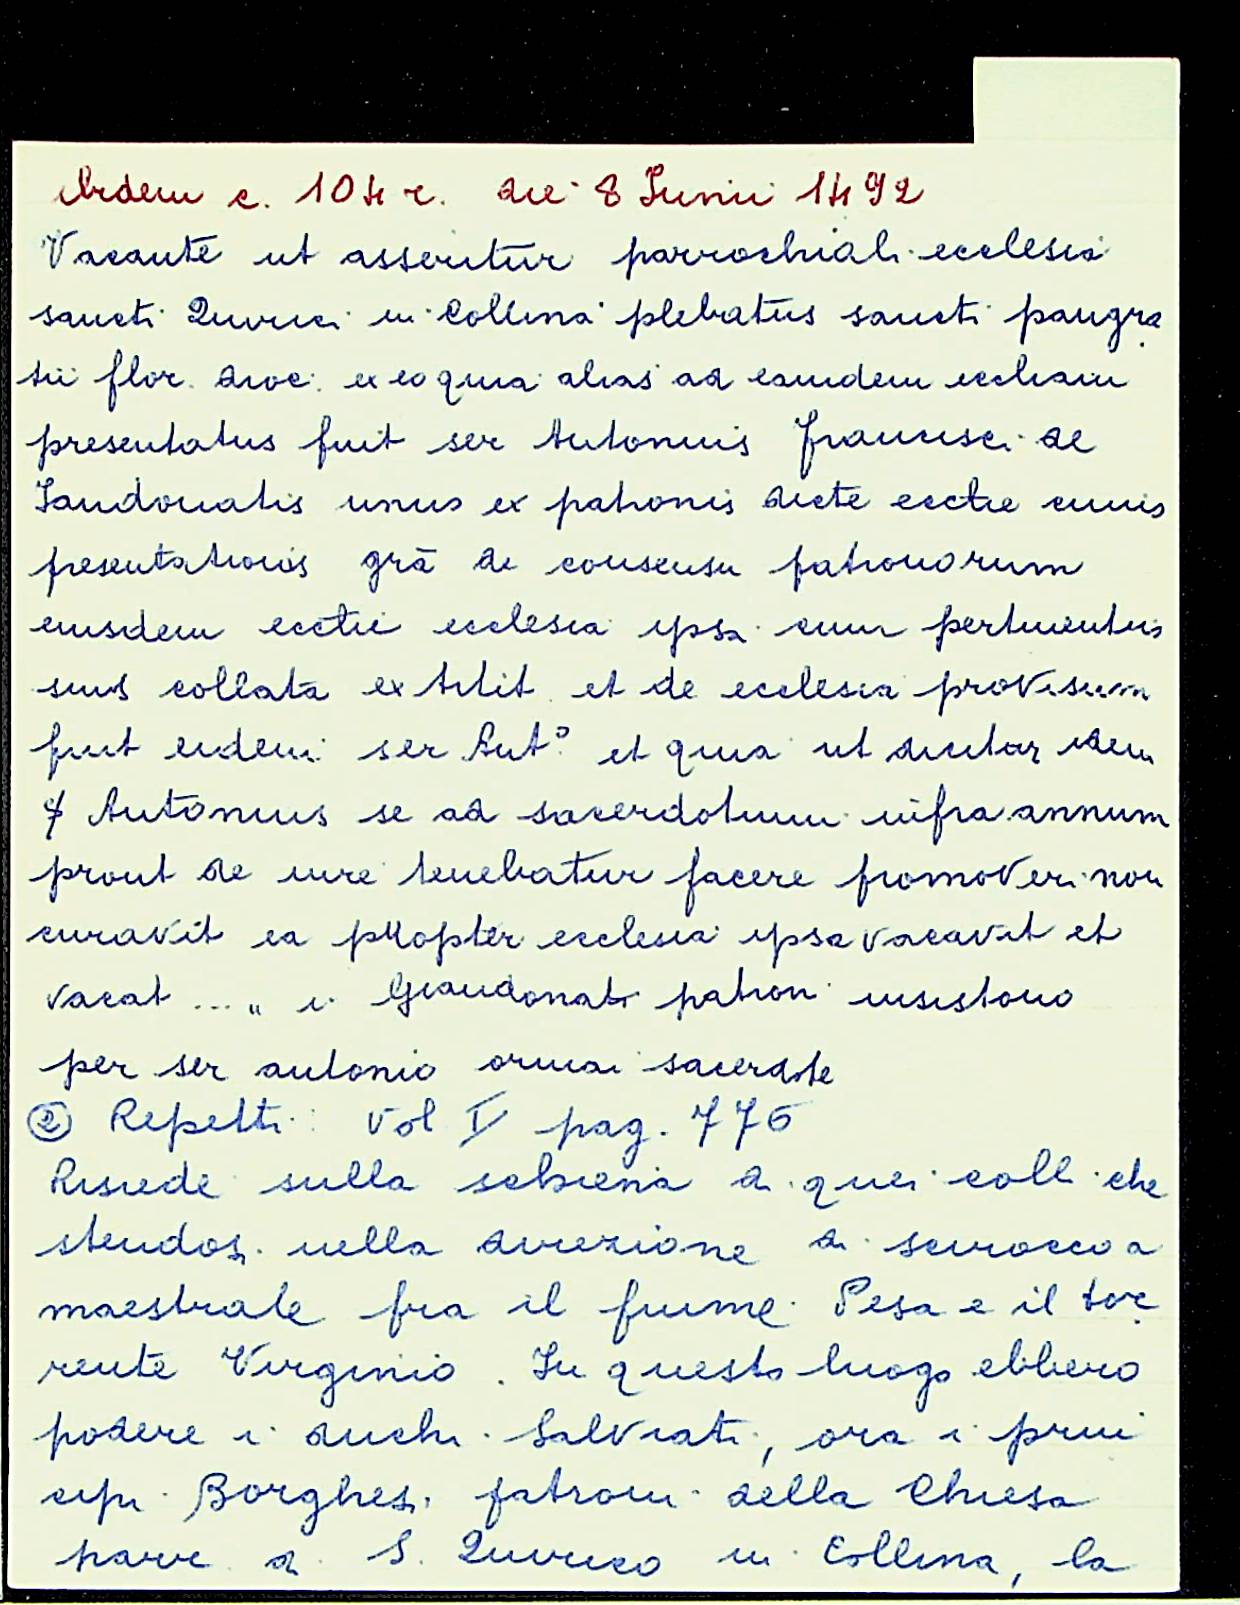 Ibidem c. 104 r. die 8 Junii 1492
Vacante ut asseritur parrochiali ecclesia
sancti Quirici in Collina plebatus sancti pangra
tii flor. dioc. ex eo quia alias ad eamdem eccliam
presentatus fuit ser Antonius francisci de
Jandonatis unus ex patronis dicte ecctie cuius
presentationis grā de consensu patronorum
eiusdem ecctie ecclesia ipsa cum pertinentiis
suis collata extitit et de ecclesia provisum
fuit eidem ser Ant.° et quia ut dicitur idem
Antonius se ad sacerdotium infra annum
prout de iure tenebatur facere promoveri non
curavit ea propter ecclesia ipsa vacavit et
vacat ... „ i Giandonati patroni insistono
per ser antonio ormai sacerdote
② Repetti: Vol IV pag. 776
Risiede sulla schiena di quei colli che
stendosi nella direzione di scirocco a
maestrale fra il fiume Pesa e il tor
rente Virginio. In questo luogo ebbero
podere i duchi Salviati, ora i prin
cipi Borghesi patroni della Chiesa
parr. di S. Quirico in Collina, la